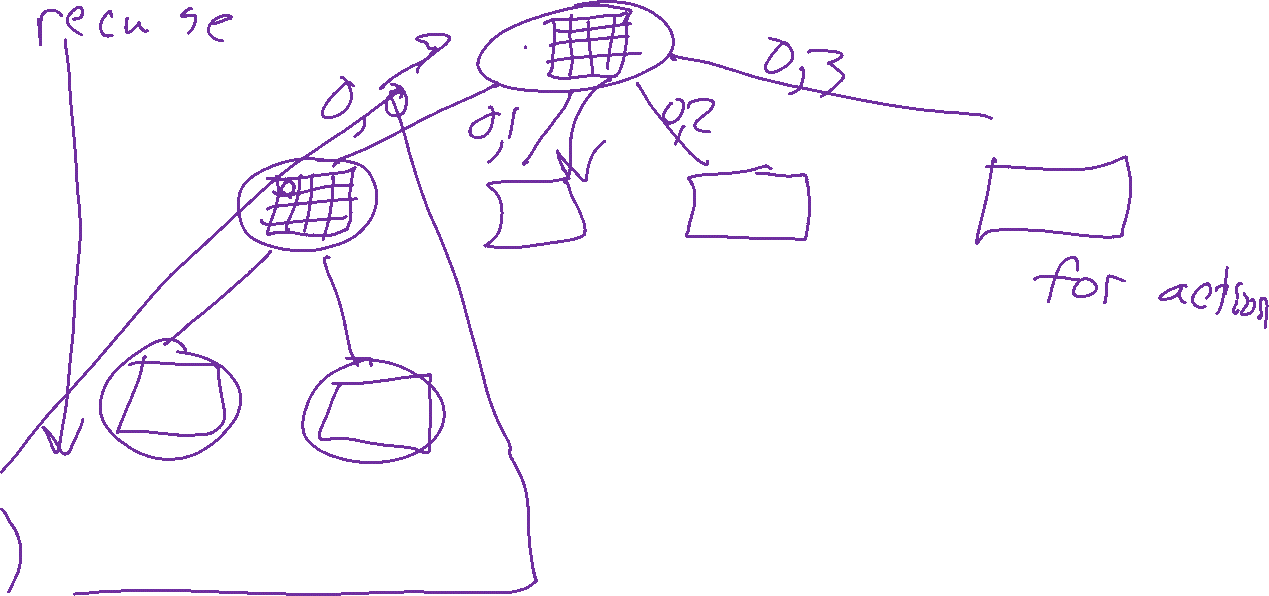 recuse
0,3
0,
0,1
0,2
for action